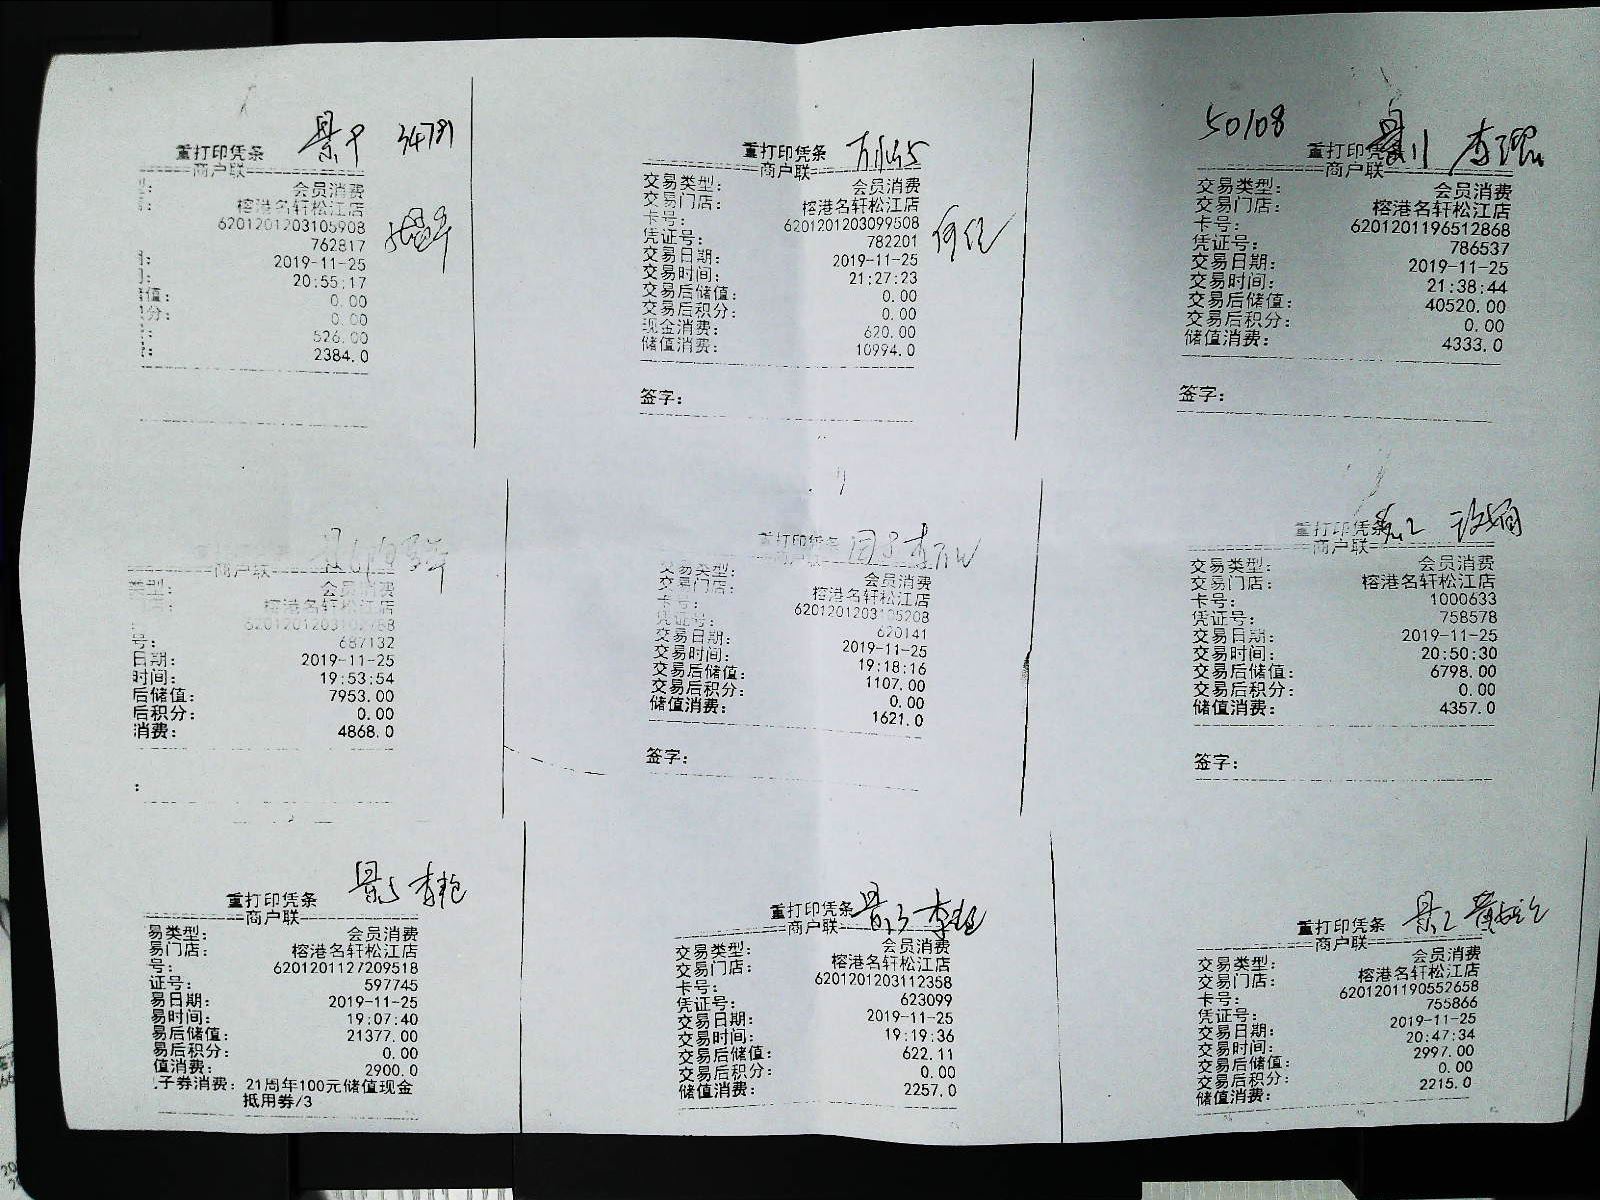 34781
重打印凭条
商户联
会员消费
榕港名轩松江店
6201201203105908
762817
2019-11-25
20:55:17
值: 0.00
分: 0.00
526.00
2384.0
重打印凭条
商户联
交易类型: 会员消费
交易门店: 榕港名轩松江店
卡号: 6201201203099508
凭证号: 782201
交易日期: 2019-11-25
交易时间: 21:27:23
交易后储值: 0.00
交易后积分: 0.00
现金消费: 620.00
储值消费: 10994.0
签字:
50108
重打印凭
商户联
交易类型: 会员消费
交易门店: 榕港名轩松江店
卡号: 6201201196512868
凭证号: 786537
交易日期: 2019-11-25
交易时间: 21:38:44
交易后储值: 40520.00
交易后积分: 0.00
储值消费: 4333.0
签字:
重打印凭条
商户联
类型: 会员消费
店: 榕港名轩松江店
号: 687132
日期: 2019-11-25
时间: 19:53:54
后储值: 7953.00
后积分: 0.00
消费: 4868.0
:
重打印凭条
商户联
交易类型: 会员消费
交易门店: 榕港名轩松江店
卡号: 6201201203105208
凭证号: 620141
交易日期: 2019-11-25
交易时间: 19:18:16
交易后储值: 1107.00
交易后积分: 0.00
储值消费: 1621.0
签字:
重打印凭条
商户联
交易类型: 会员消费
交易门店: 榕港名轩松江店
卡号: 1000633
凭证号: 758578
交易日期: 2019-11-25
交易时间: 20:50:30
交易后储值: 6798.00
交易后积分: 0.00
储值消费: 4357.0
签字:
重打印凭条
商户联
易类型: 会员消费
易门店: 榕港名轩松江店
号: 6201201127209518
证号: 597745
易日期: 2019-11-25
易时间: 19:07:40
易后储值: 21377.00
易后积分: 0.00
值消费: 2900.0
子券消费: 21周年100元储值现金
抵用券/3
重打印凭条
商户联
交易类型: 会员消费
交易门店: 榕港名轩松江店
卡号: 6201201203112358
凭证号: 623099
交易日期: 2019-11-25
交易时间: 19:19:36
交易后储值: 622.11
交易后积分: 0.00
储值消费: 2257.0
重打印凭条
商户联
交易类型: 会员消费
交易门店: 榕港名轩松江店
卡号: 6201201190552658
凭证号: 755866
交易日期: 2019-11-25
交易时间: 20:47:34
交易后储值: 2997.00
交易后积分: 0.00
储值消费: 2215.0